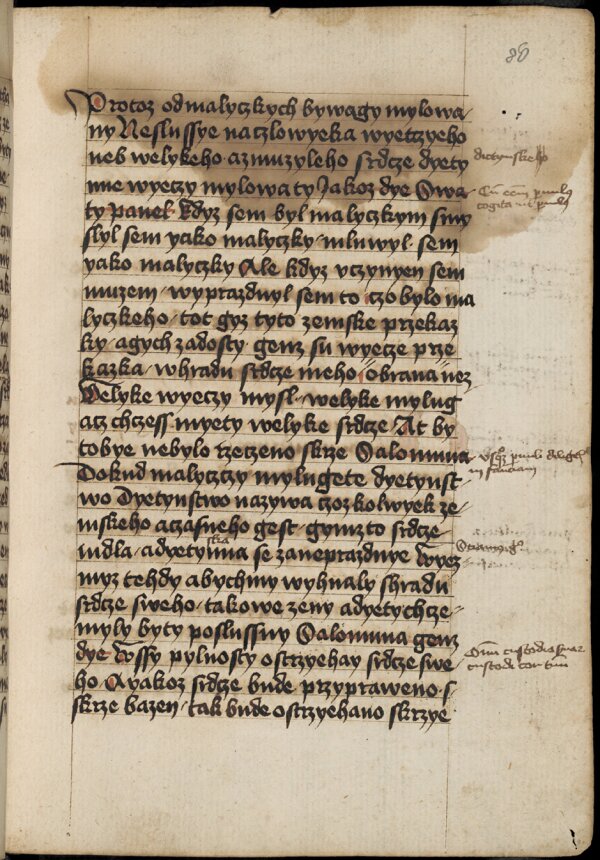 80
Protoz od malyczkych bywagy mylowa
ny Neslussye na czlowyeka wyetczyeho
neb welykeho a zmuzyleho srdcze dyety
nne wyeczy mylowaty Jakoz dye Swa
ty pawel Kdyz sem byl malyczkym smy
slyl sem yako malyczky mluwyl sem
yako malyczky Ale kdyz vczynyen sem
muzem wyprazdnyl sem to czo bylo ma
lyczkeho tot gyz tyto zemske przekaz
ky a gych zadosty genz su wyecze prze
kazka w hradu srdcze meho obrana nez
Welyke wyeczy mysl welyke mylug
acz chczess myety welyke srdcze At by
tobye nebylo rzeczeno skrze Salomuna
Dokud malyczczy mylugete dyetynst
wo Dyetynstwo nazywa czozkolwyek ze
mskeho a czasneho gest gymzto srdcze
mdla a dyetynna se zaneprazdnye Wyez
ska
myz tehdy abychmy wyhnaly s hradu
srdcze sweho takowe zeny a dyety chcze
my ly byty poslussny Salomuna genz
dye Wssy pylnosty ostrzyehay srdcze swe
ho A yakoz srdcze bude przypraweno s
skrze bazen tak bude ostrzyehano skrzye
dietynskeho
Cum essem paruulus
cogitaui ut paruulus
vsque paruuli diligitis
infanciam
Omni custodia serua
custodi cor tuum